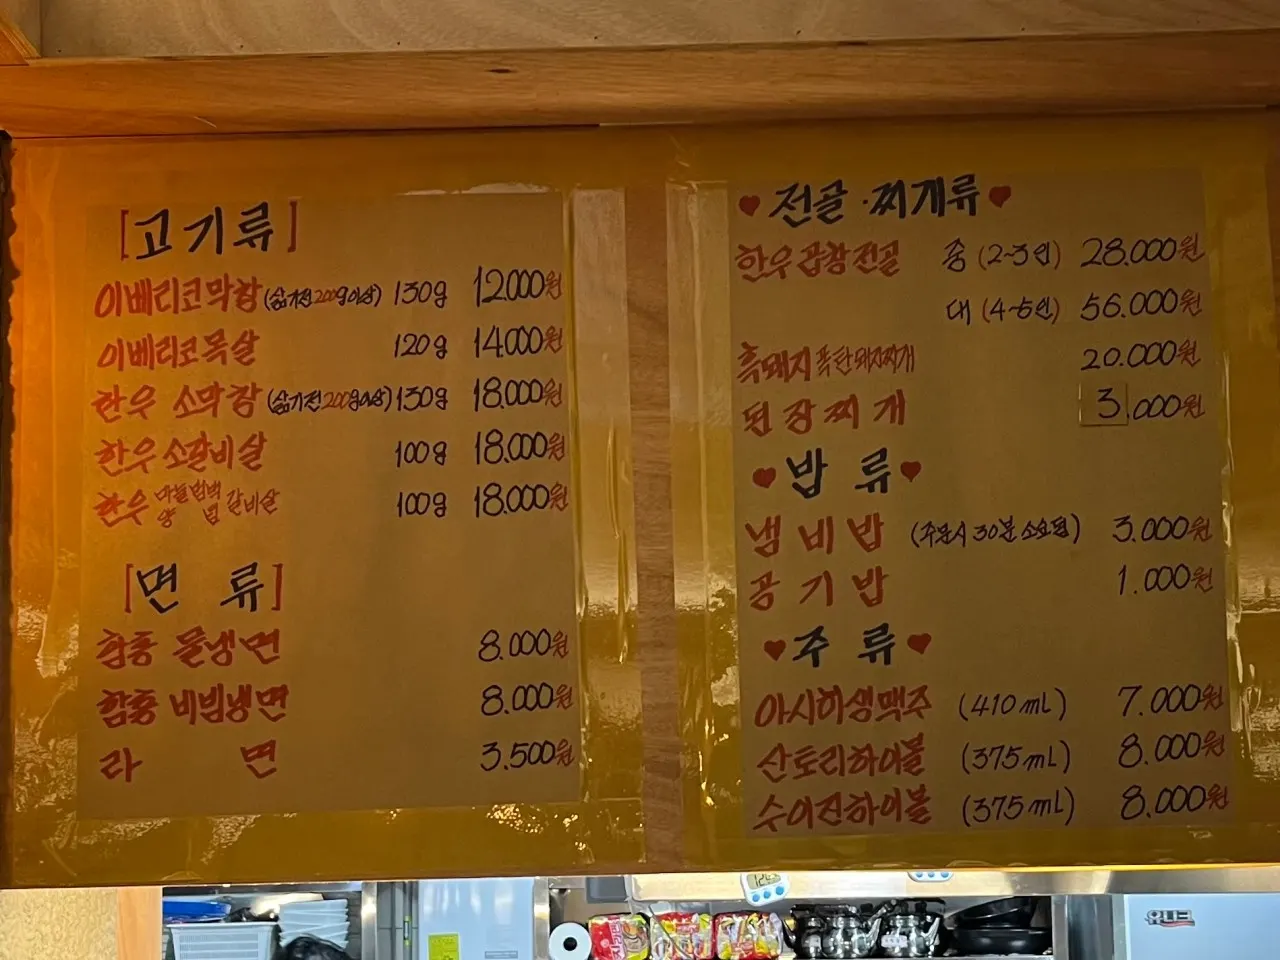 [고기류]
이베리코막창(삶기전200g이상) 130g 12.000원
이베리코목살 120g 14.000원
한우 소막창(삶기전200g이상) 130g 18.000원
한우 소갈비살 100g 18.000원
한우 마늘범벅 양념 갈비살 100g 18.000원
[면 류]
함흥 물냉면 8.000원
함흥 비빔냉면 8.000원
라 면 3.500원
♥전골·찌개류♥
한우곱창전골 중 (2~3인) 28.000원
대 (4~5인) 56.000원
흑돼지폭탄돼지찌개 20.000원
된장찌개 3.000원
♥밥 류♥
냄비밥 (주문시 30분 소요됨) 3.000원
공기밥 1.000원
♥주 류♥
아사히생맥주 (410mL) 7.000원
산토리하이볼 (375mL) 8.000원
수이진하이볼 (375mL) 8.000원
유니크